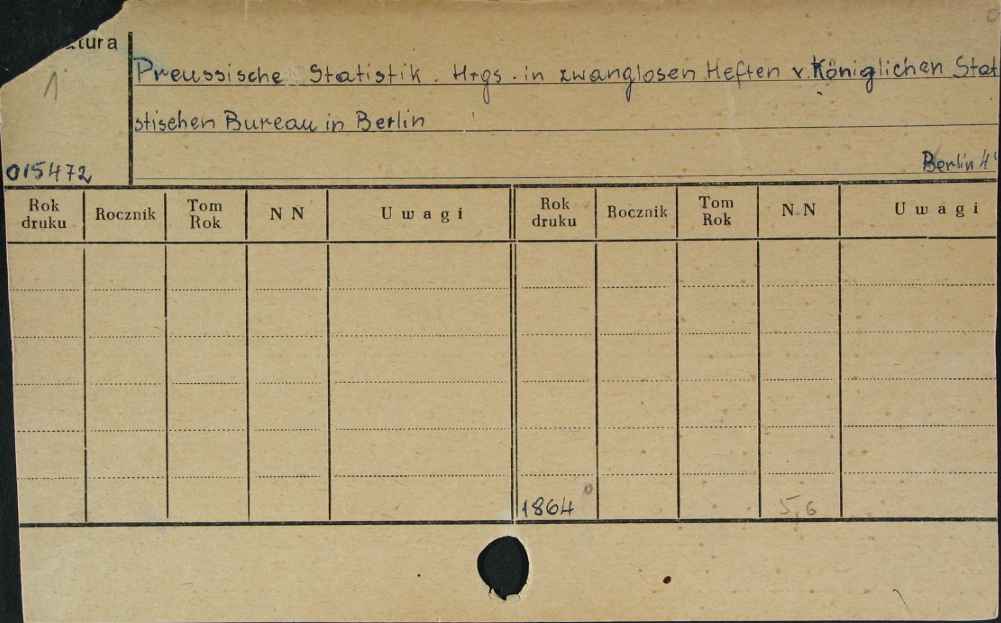 tura
1
Preussische Statistik. Hrgs. in zwanglosen Heften v. Königlichen Stat
stischen Bureau in Berlin
015472
Berlin 4°
Rok druku Rocznik Tom Rok N N Uwagi Rok druku Rocznik Tom Rok N N Uwagi
1864 5,6